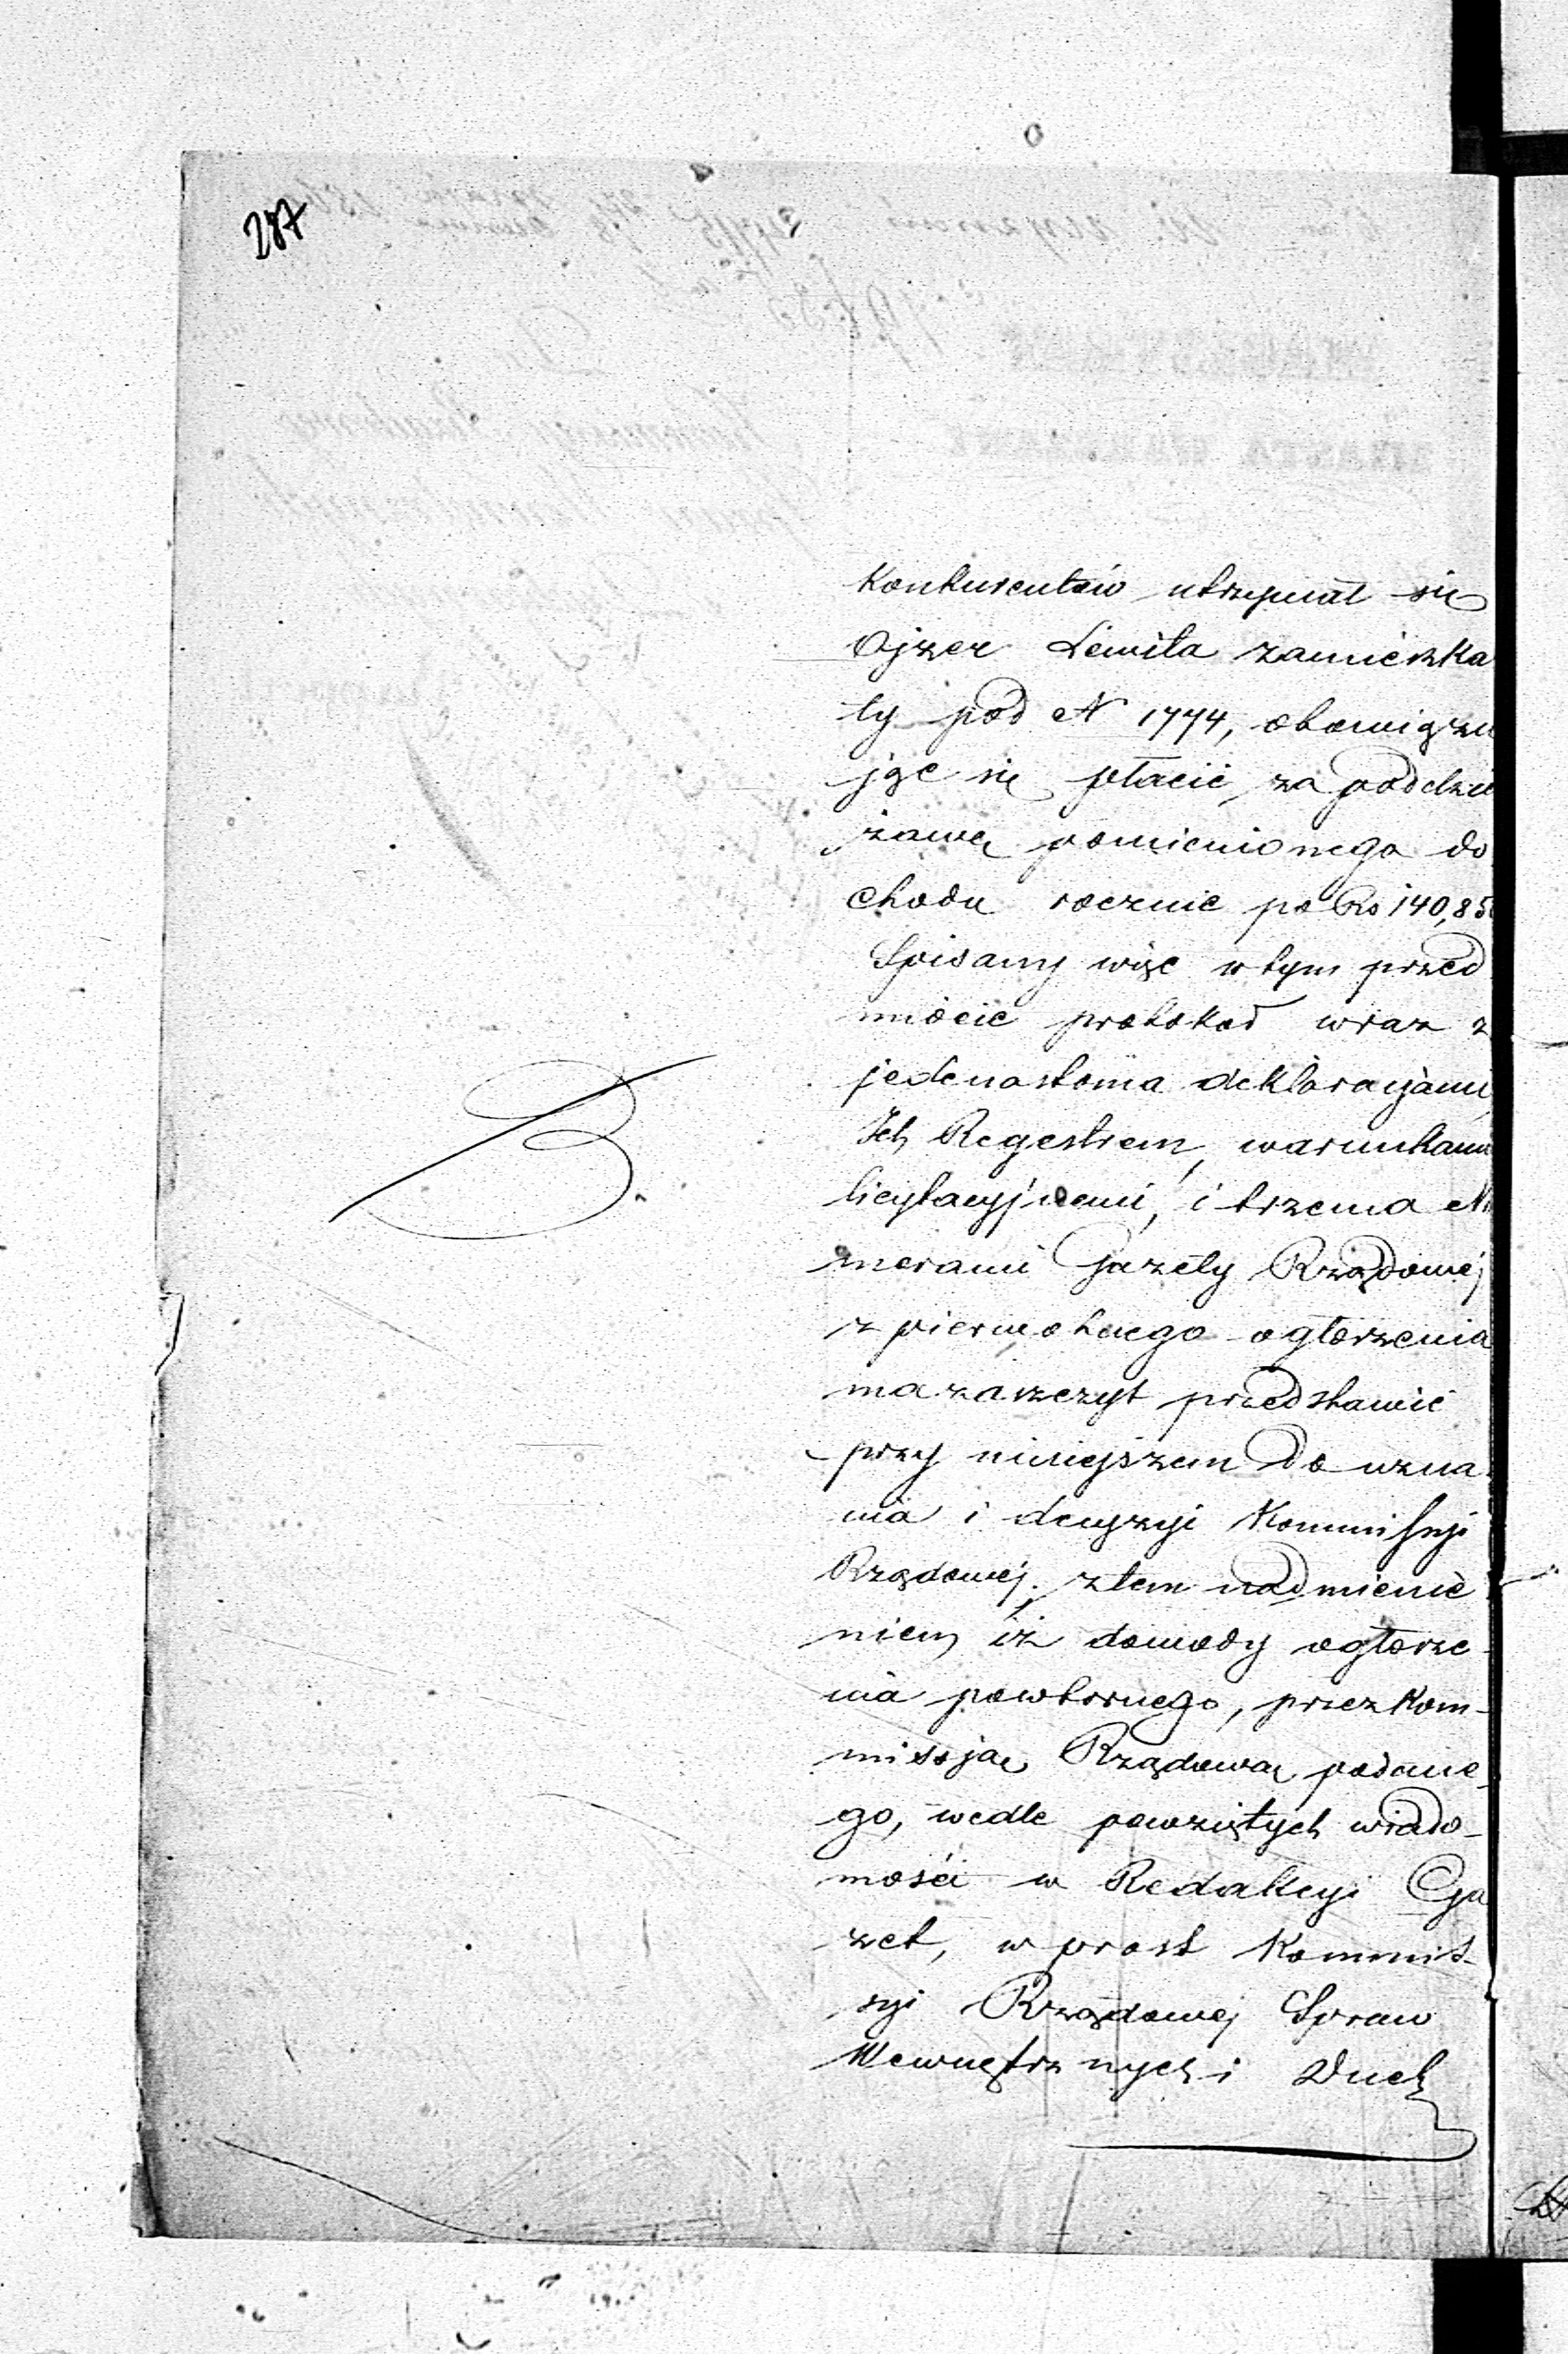 287
Konkurentów utrzymał się
Ojzer Lewita zamieszka
ły pod N 1774, obowiązu
jąc się płacić za poddzier
żawę pomienionego do
chodu rocznie po Rs 140,85
Spisany więc w tym przed
miocie protokoł wraz z
jedenastoma deklaracjami
Ich Regestrem, warunkami
licytacyjnemi, i trzema Nu
merami Gazety Rządowej
z pierwotnego ogłoszenia
ma zaszczyt przedstawić
przy niniejszem do uzna
nia i decyzyi Kommissyi
Rządowej, z tem nadmienie
niem iż dowody ogłosze
nia powtornego, przez Kom-
missją Rządową podane-
go, wedle powziętych wiado-
mości w Redakcyi Ga
zet, wprost Kommis-
syi Rządowej Spraw
Wewnętrznych i Duch